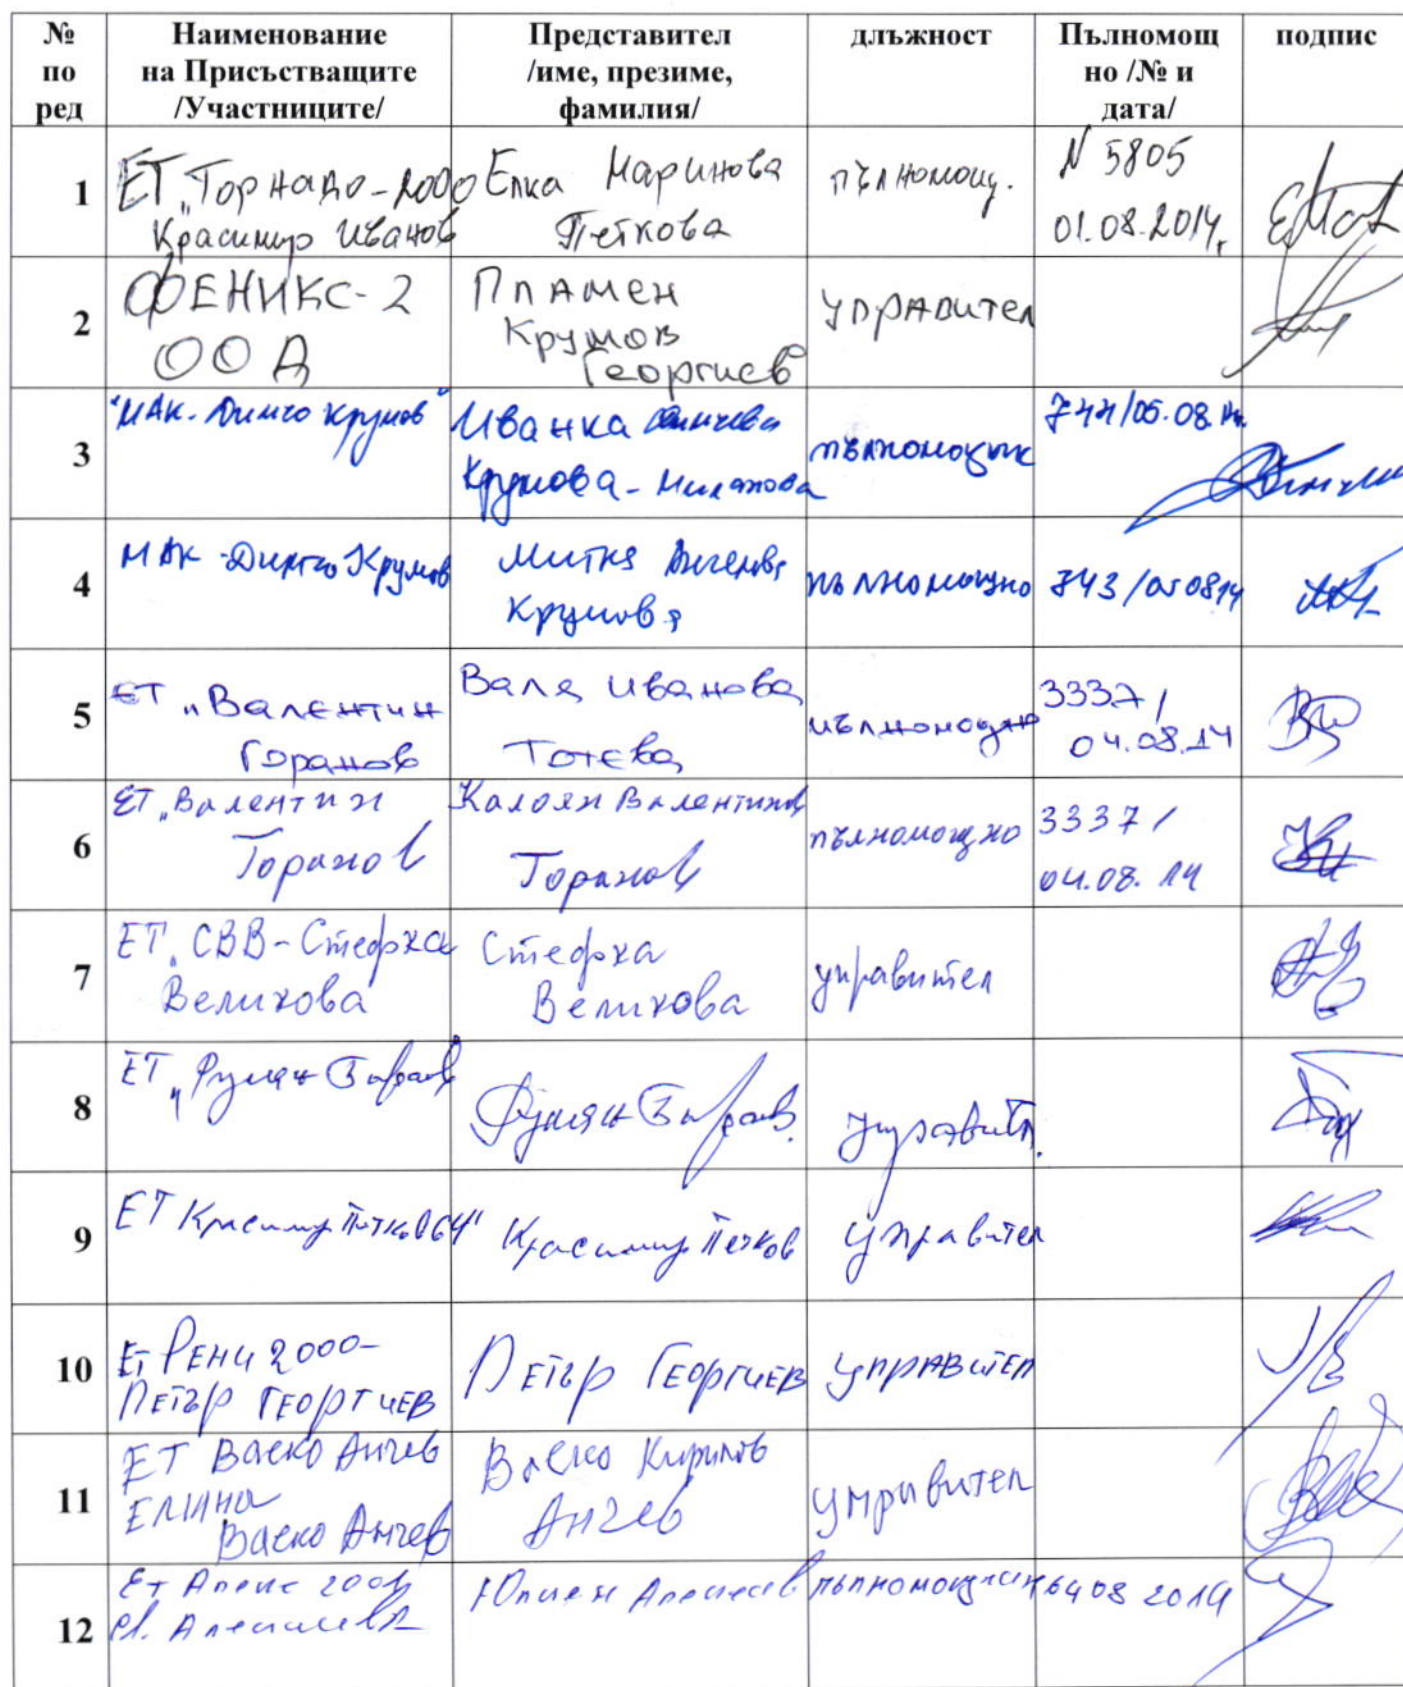 № по ред
Наименование на Присъстващите /Участниците/
Представител /име, презиме, фамилия/
длъжност
Пълномощ но /№ и дата/
подпис
1
ЕТ „Торнадо-2000
Красимир Иванов
Елка Маринова
Петкова
пълномощ.
N 5805
01.08.2014г
2
ФЕНИКС-2
ООД
Пламен
Крумов
Георгиев
управител
3
"МАК-Димчо Крумов"
Иванка
Крумова-
пълномощник
4
МАК-Димчо Крумов
Митка Ангелова
Крумова
пълномощно
743/050814
5
ЕТ „Валентин
Горанов
Валя Иванова
Тотева
пълномощно
3337/
04.08.14
6
ЕТ „Валентин
Горанов
Калоян Валентинов
Горанов
пълномощно
3337/
04.08.14
7
ЕТ „СВВ-Стефка
Великова
Стефка
Великова
управител
8
ЕТ „Румен
управител
9
ЕТ Красимир Петков 64"
Красимир Петков
управител
10
ЕТ Рени 2000-
Петър Георгиев
Петър Георгиев
управител
11
ЕТ Васко Анчев
Елина
Васко Анчев
Васко Кирилов
Анчев
управител
12
Ет 2001
пълномощник
04 08 2014